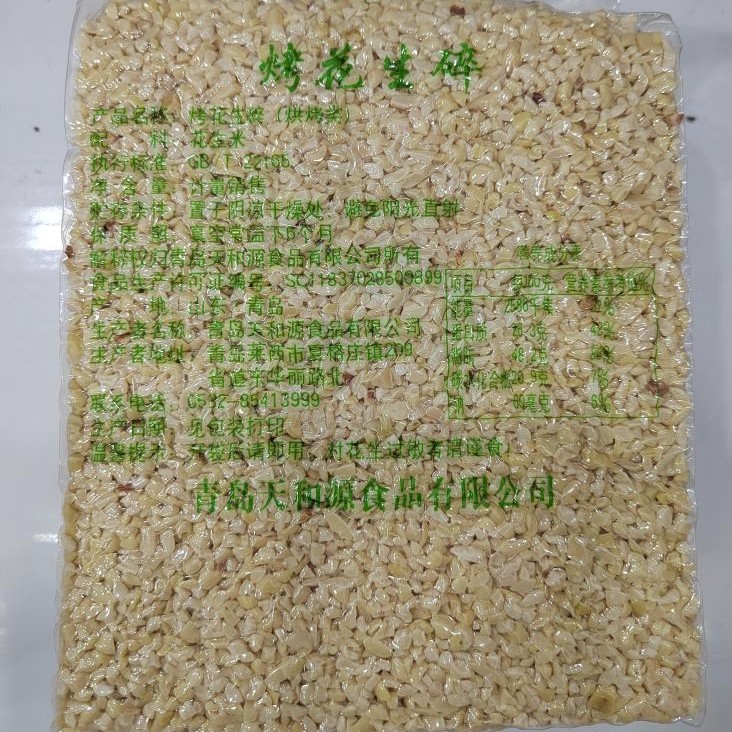 烤花生碎
产品名称：烤花生碎（烘烤类）
配 料：花生米
执行标准：GB/T 22165
净 含 量：计量销售
贮存条件：置于阴凉干燥处，避免阳光直射
保 质 期：真空常温下6个月
版权归青岛天和源食品有限公司所有
食品生产许可证编号：SC11837028500899
产 地：山东 青岛
生产者名称：青岛天和源食品有限公司
生产者地址：青岛莱西市夏格庄镇209
省道东华丽路北
联系电话：0532-85413999
生产日期：见包装打印
温馨提示：开袋后请即用，对花生过敏者请谨食！
营养成分表
项目 每100克 营养素参考值%
蛋白质
碳水化合物
钠
青岛天和源食品有限公司